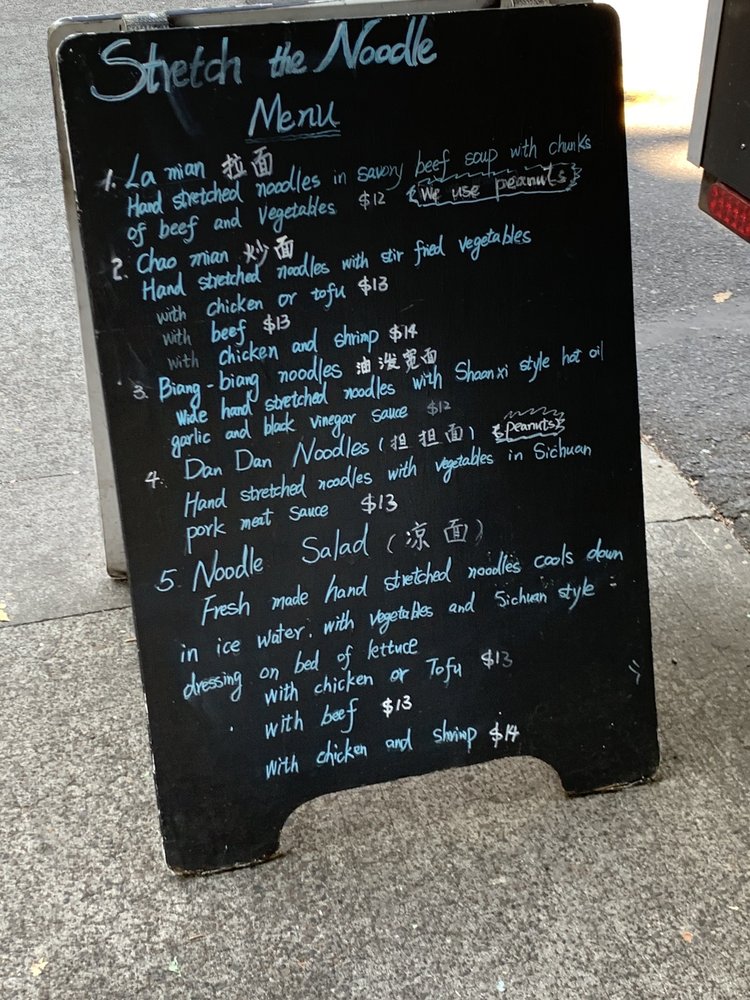 Stretch the Noodle
Menu
1. La mian 拉面
Hand stretched noodles in savory beef soup with chunks
of beef and Vegetables $12 We use peanuts
2. Chao mian 炒面
Hand stretched noodles with stir fried vegetables
with chicken or tofu $13
with beef $13
with chicken and shrimp $14
3. Biang-biang noodles 油泼宽面
Wide hand stretched noodles with Shaanxi style hot oil
garlic and black vinegar sauce $12
4. Dan Dan Noodles (担担面) peanuts
Hand stretched noodles with vegetables in Sichuan
pork meat sauce $13
5. Noodle Salad (凉面)
Fresh made hand stretched noodles cools down
in ice water. with vegetables and Sichuan style
dressing on bed of lettuce
with chicken or Tofu $13
with beef $13
with chicken and shrimp $14